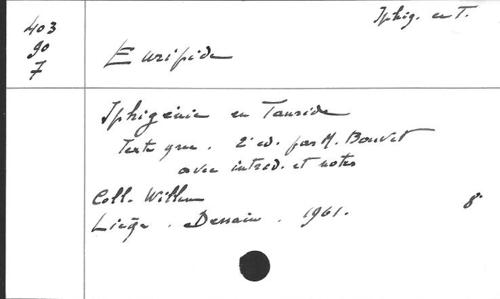 Iphig. en T.
403
90
7
Euripide
Iphigénie en Tauride
Texte grec. 2e ed. par M. Bouvet
avec introd. et notes
Coll. Willem
Liège. Dessain. 1961.
8°